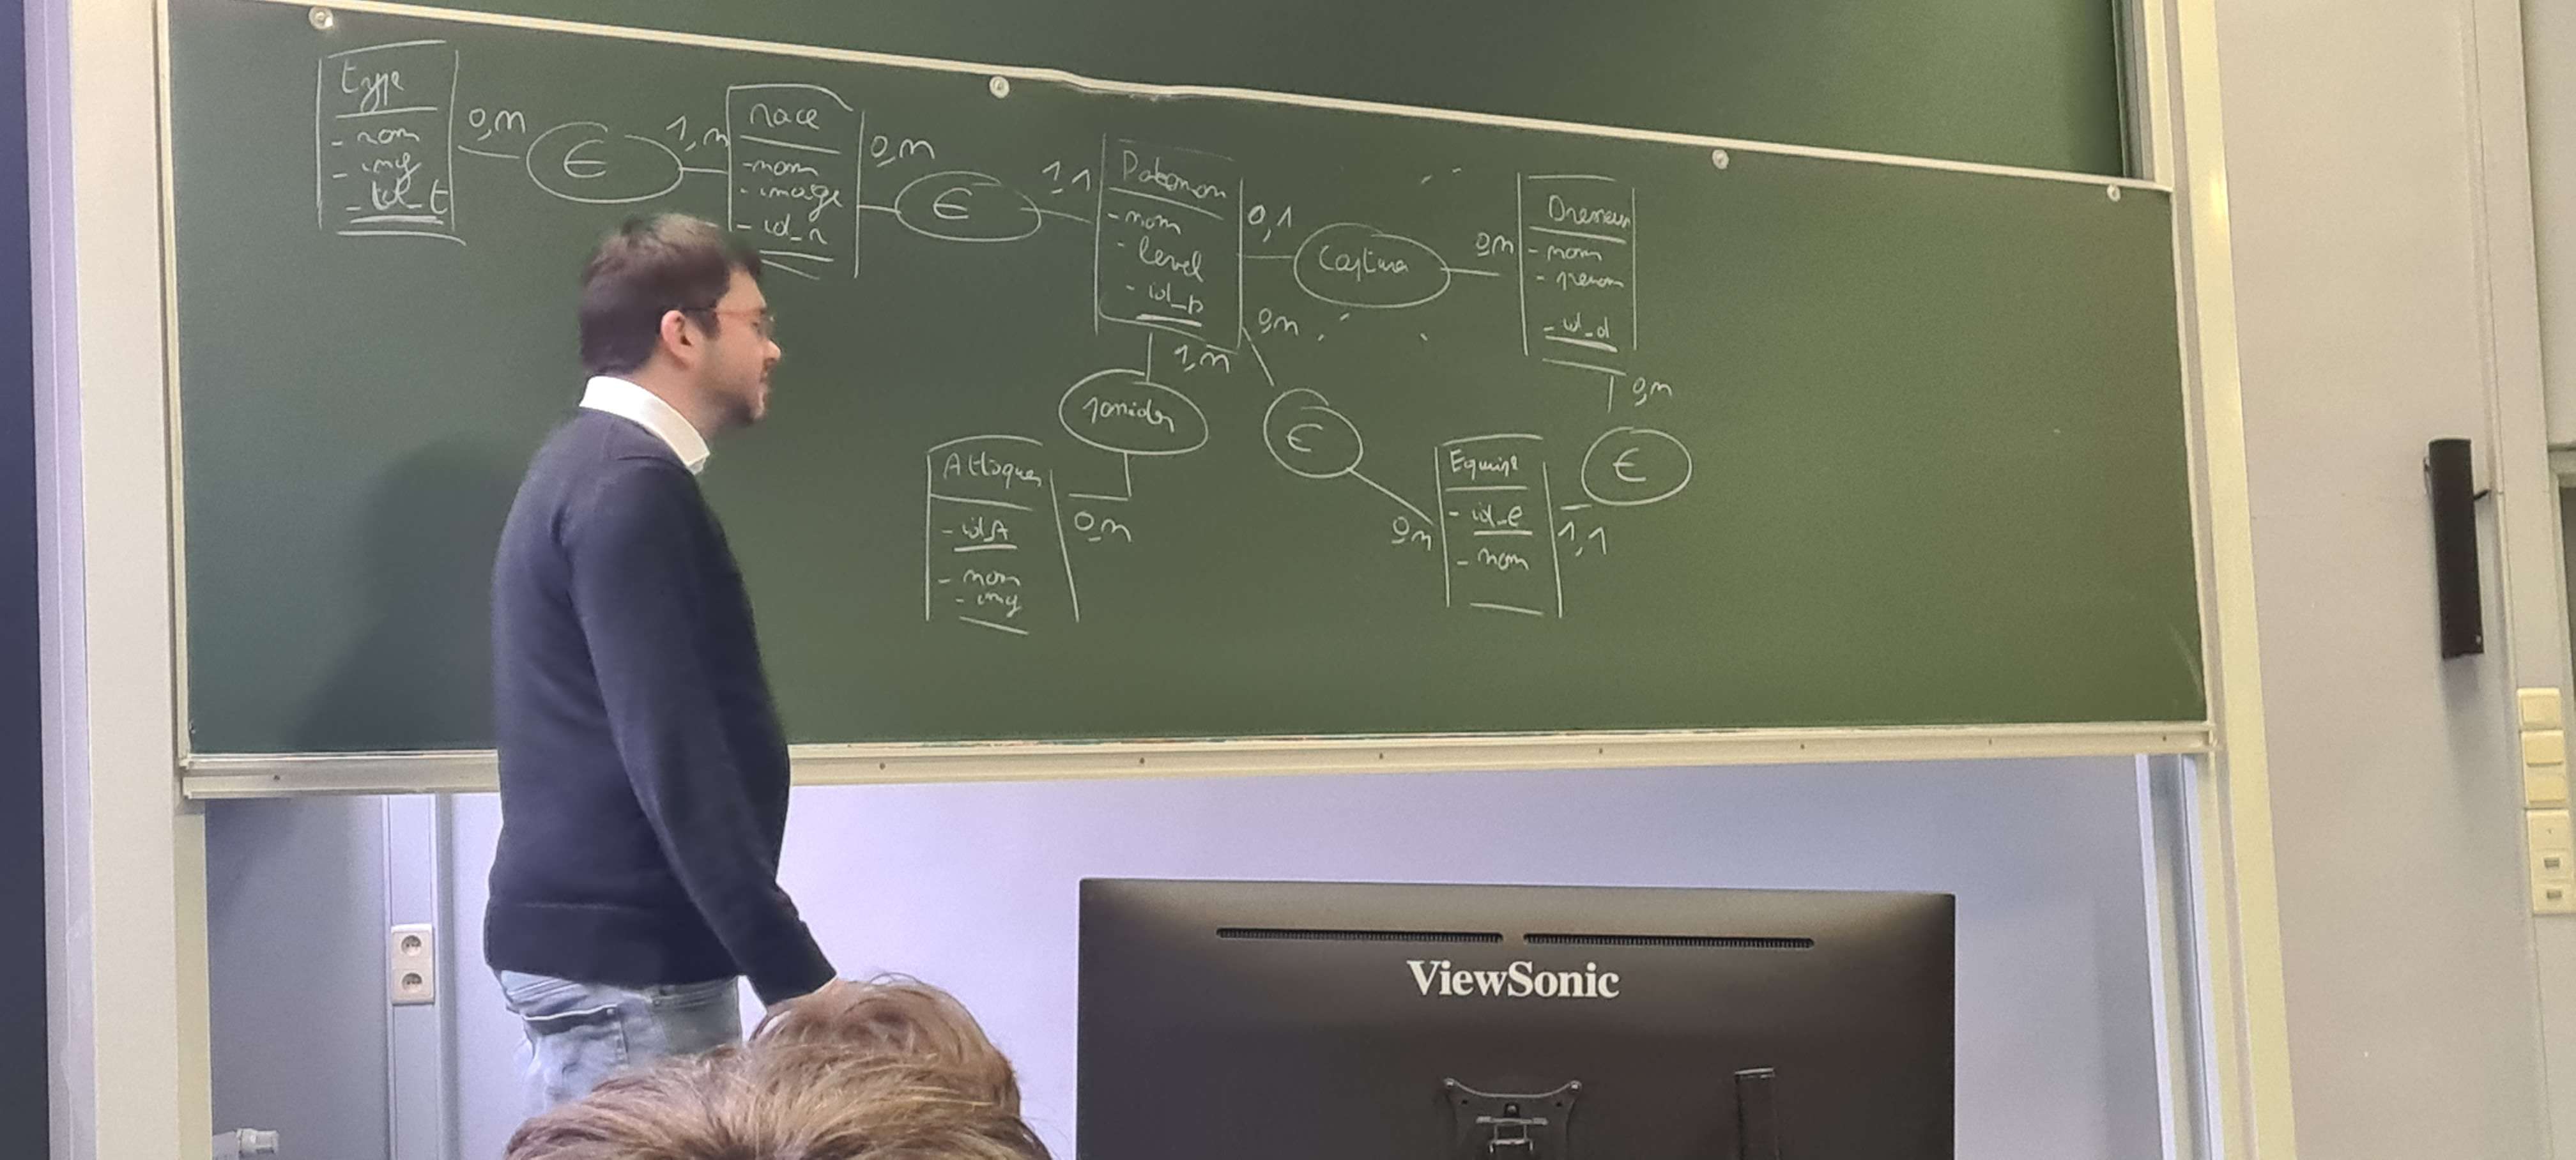 type
- nom
- img
- id_t
0,n
€
1,n
race
- nom
- image
- id_r
0,n
€
1,1
Pokemon
- nom
- level
- id_p
0,1
Capturer
0,n
Dresseur
- nom
- prenom
- id_d
0,n
1,n
0,n
€
Attaques
- id_A
- nom
- img
0,n
€
0,n
Equipe
- id_e
- nom
1,1
ViewSonic